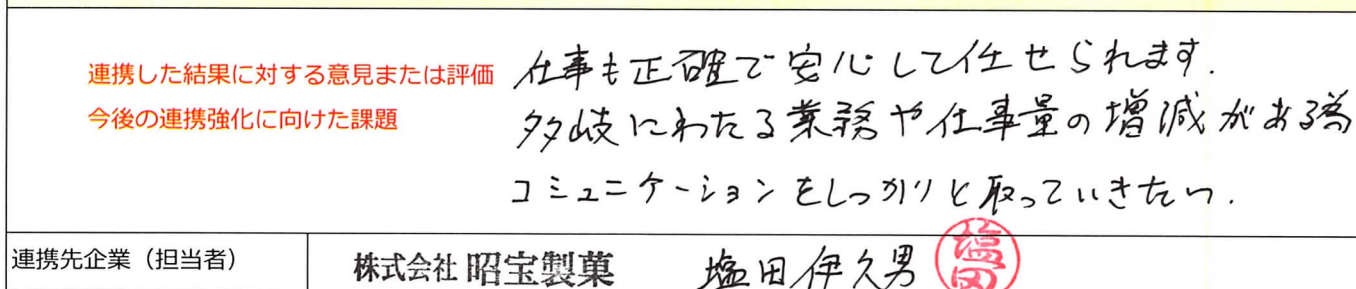 連携した結果に対する意見または評価
今後の連携強化に向けた課題
仕事も正確で安心して任せられます.
多岐にわたる業務や仕事量の増減がある為
コミュニケーションをしっかりと取っていきたい.
連携先企業（担当者）
株式会社 昭宝製菓
塩田伊久男
塩田